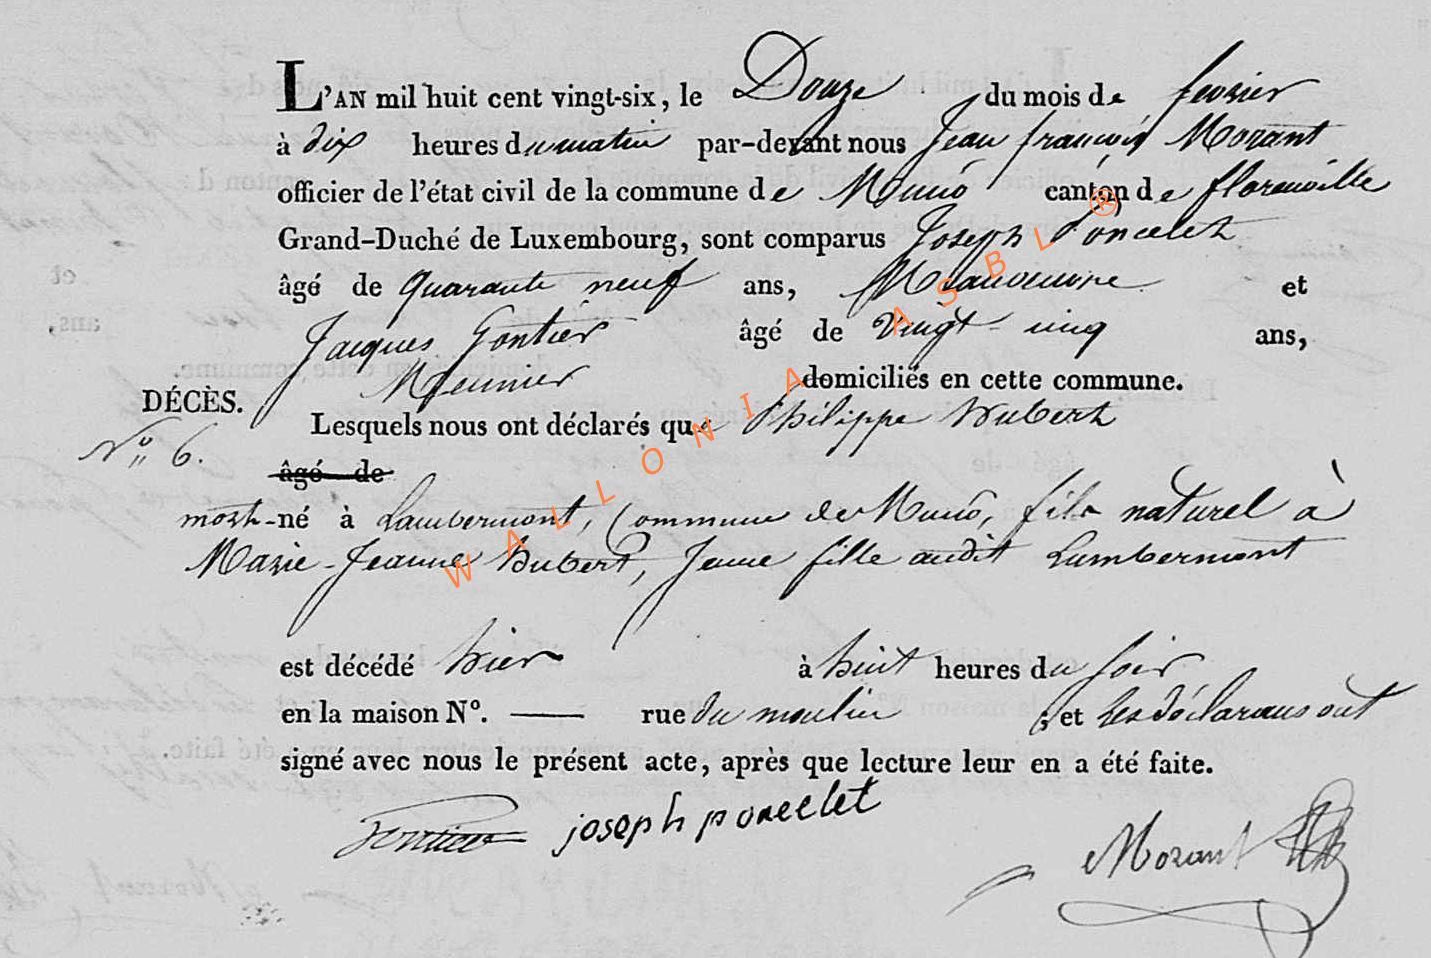 L'AN mil huit cent vingt-six, le Douze du mois de fevrier
à dix heures du matin par-devant nous Jean françois Morant
officier de l'état civil de la commune de Muno canton de florenville
Grand-Duché de Luxembourg, sont comparus Joseph Poncelet
âgé de quarante neuf ans, Manoeuvre et
Jacques Gontier âgé de Vingt-cinq ans,
Meunier domiciliés en cette commune.
DÉCÈS.
Lesquels nous ont déclarés que Philippe Hubert
No 6.
âgé de
mort-né à Lambermont, Commune de Muno, fils naturel à
Marie-Jeanne Hubert, Jeune fille audit Lambermont
est décédé hier à huit heures du soir
en la maison N°. — rue du moulin ; et les déclarans ont
signé avec nous le présent acte, après que lecture leur en a été faite.
Gontier joseph poncelet
Morant
WALLONIA ASBL ®